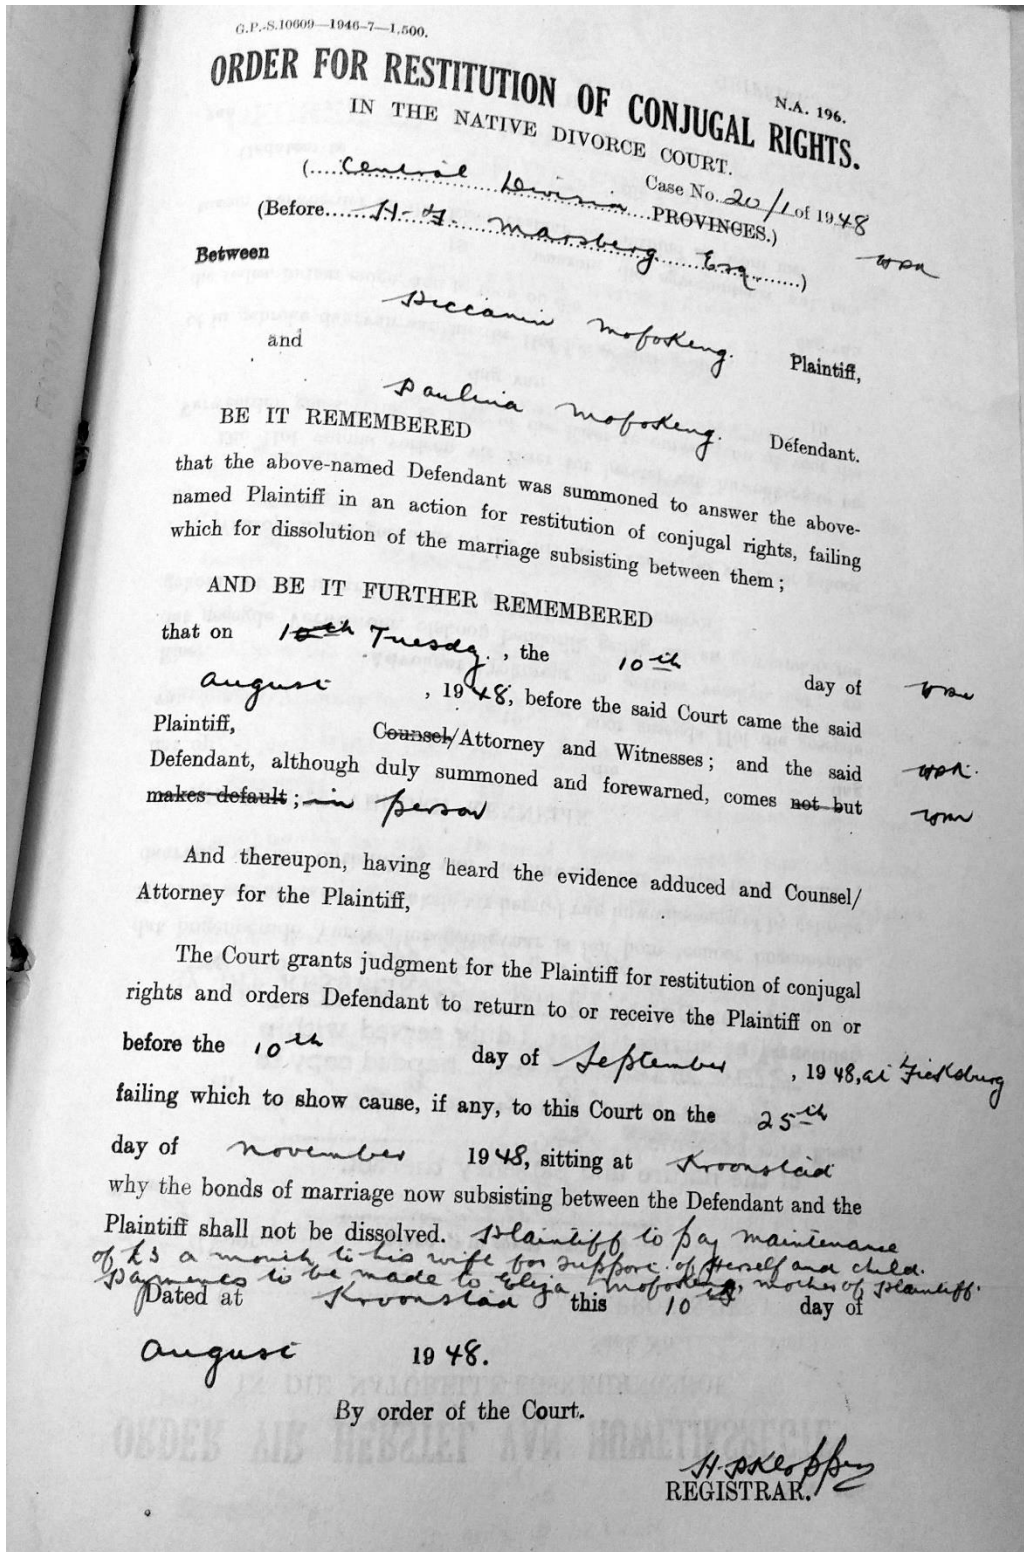 G.P.-S.10609—1946-7—1,500.
ORDER FOR RESTITUTION OF CONJUGAL RIGHTS.
N.A. 196.
IN THE NATIVE DIVORCE COURT.
Case No. 20/1 of 1948
(....Central Division....PROVINCES.)
(Before....H. F. Marsberg Esq.....)
Between
Piccanin Mofokeng. Plaintiff,
and
Paulina Mofokeng. Defendant.
BE IT REMEMBERED
that the above-named Defendant was summoned to answer the above-
named Plaintiff in an action for restitution of conjugal rights, failing
which for dissolution of the marriage subsisting between them ;
AND BE IT FURTHER REMEMBERED
that on 10th Tuesday. , the 10th day of
August , 1948, before the said Court came the said
Plaintiff, Counsel/Attorney and Witnesses ; and the said
Defendant, although duly summoned and forewarned, comes not but
makes default ; in person
And thereupon, having heard the evidence adduced and Counsel/
Attorney for the Plaintiff,
The Court grants judgment for the Plaintiff for restitution of conjugal
rights and orders Defendant to return to or receive the Plaintiff on or
before the 10th day of September , 1948, at Ficksburg
failing which to show cause, if any, to this Court on the 25th
day of November 1948, sitting at Kroonstad
why the bonds of marriage now subsisting between the Defendant and the
Plaintiff shall not be dissolved. Plaintiff to pay maintenance
of £3 a month to his wife for support of herself and child.
Payments to be made to Elija Mofokeng, mother of Plaintiff.
Dated at Kroonstad this 10th day of
August 1948.
By order of the Court.
REGISTRAR.